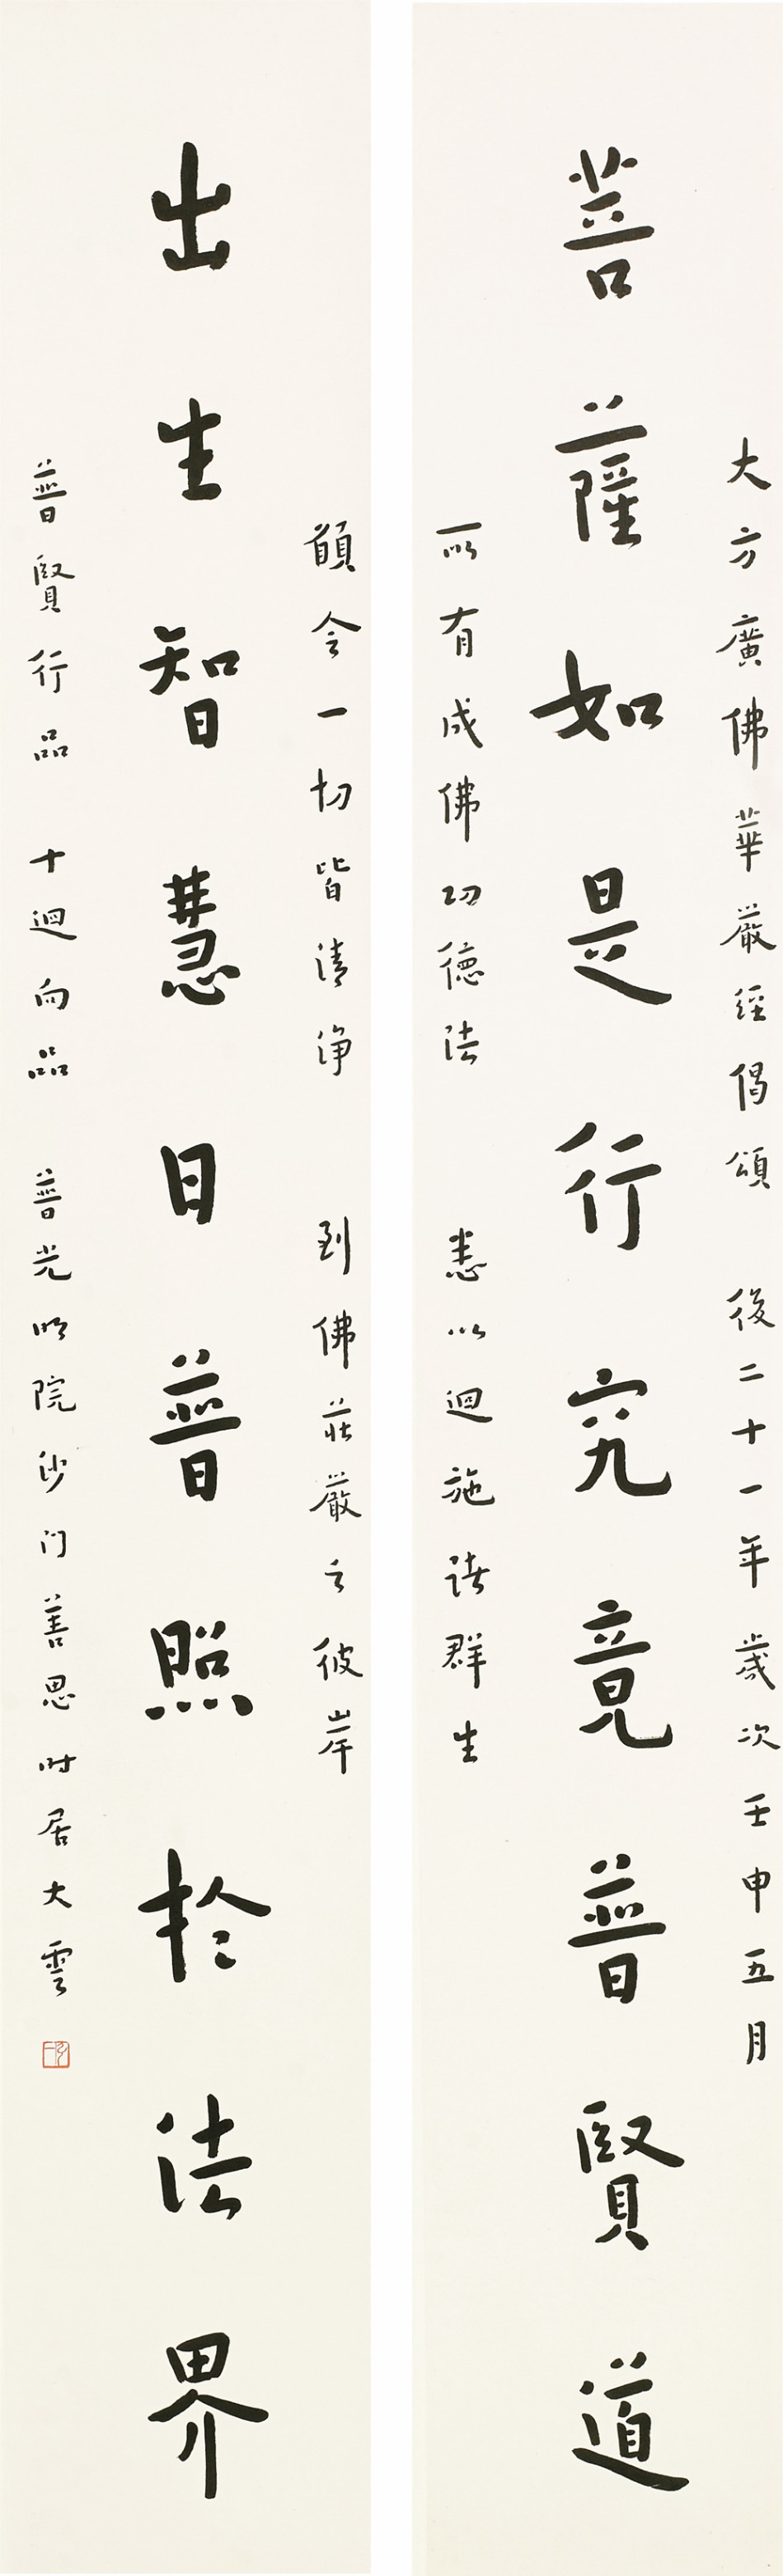 大方廣佛華嚴經偈頌 後二十一年歲次壬申五月
菩薩如是行究竟普賢道
所有成佛功德法 悉以迴施諸群生
願令一切皆清淨 到佛莊嚴之彼岸
出生智慧日普照於法界
普賢行品 十迴向品 普光明院沙门善思时居大雲